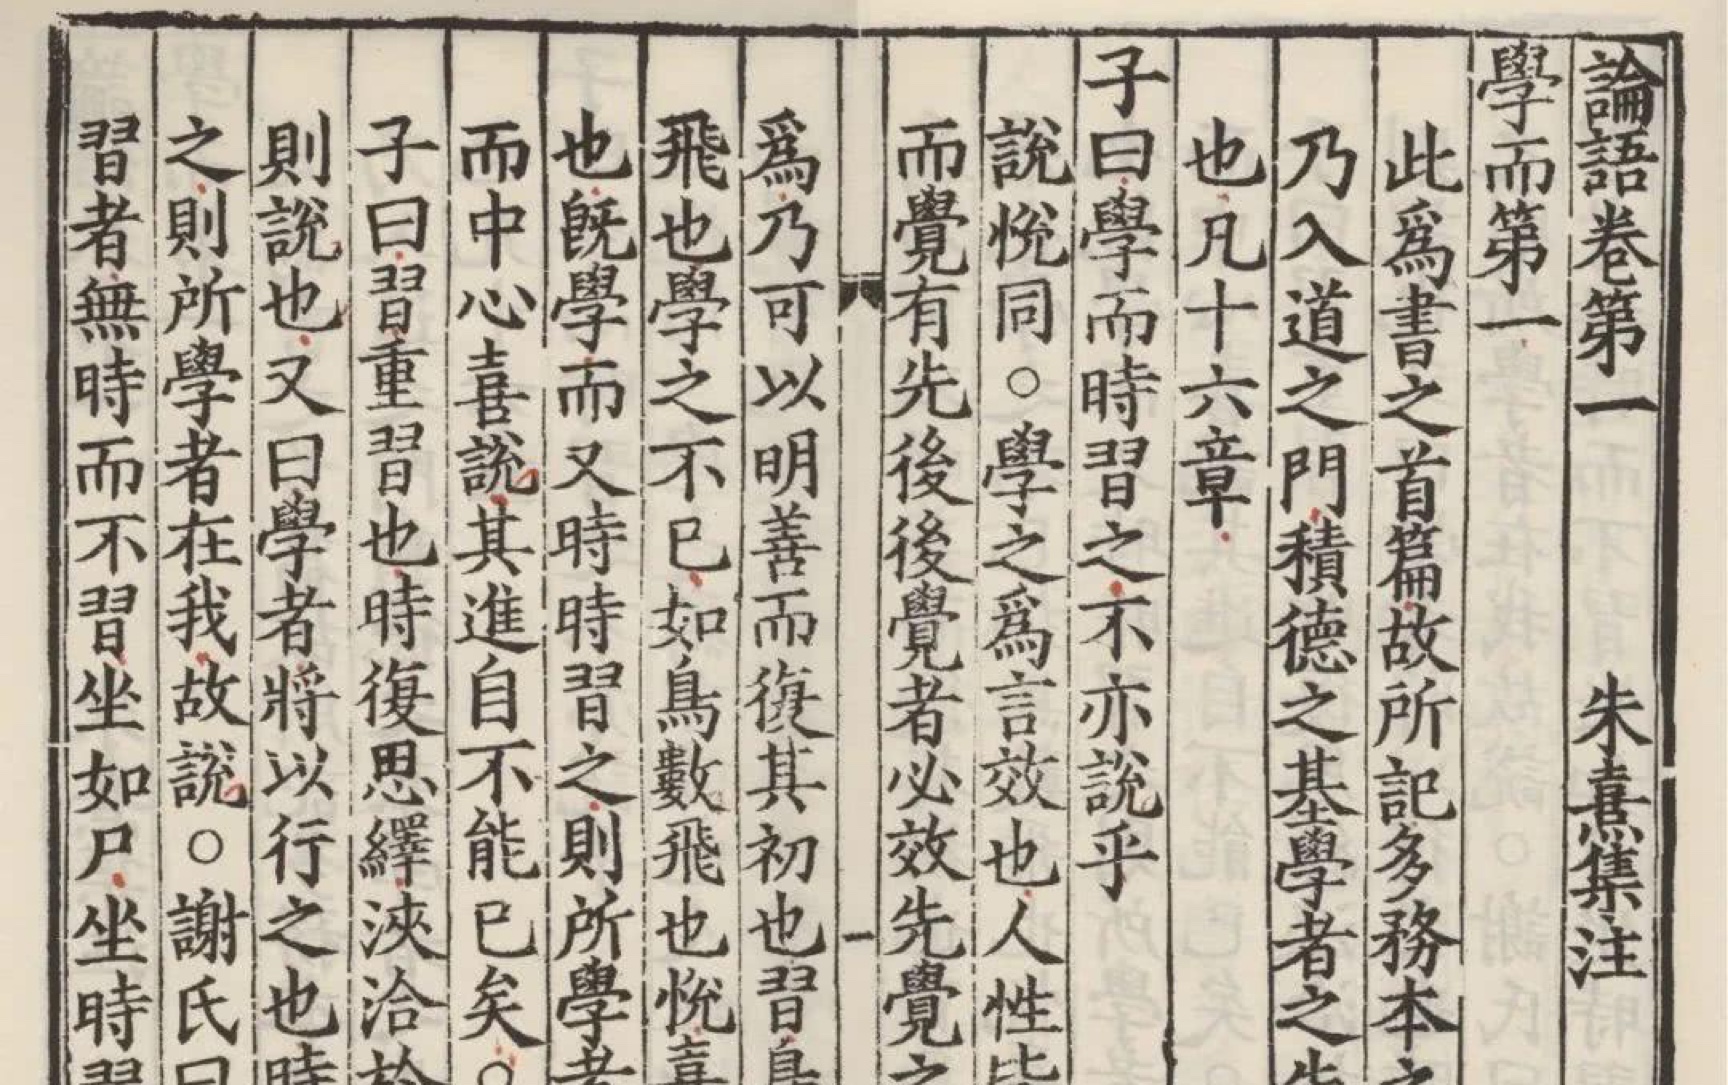 論語卷第一 朱熹集注
學而第一
此爲書之首篇故所記多務本之
乃入道之門積德之基學者之先
也凡十六章
子曰學而時習之不亦說乎
說悅同○學之爲言效也人性皆
而覺有先後後覺者必效先覺之
爲乃可以明善而復其初也習鳥
飛也學之不已如鳥數飛也悅喜
也旣學而又時時習之則所學者
而中心喜說其進自不能已矣○
子曰習重習也時復思繹浹洽於
則說也又曰學者將以行之也時
之則所學者在我故說○謝氏曰
習者無時而不習坐如尸坐時習